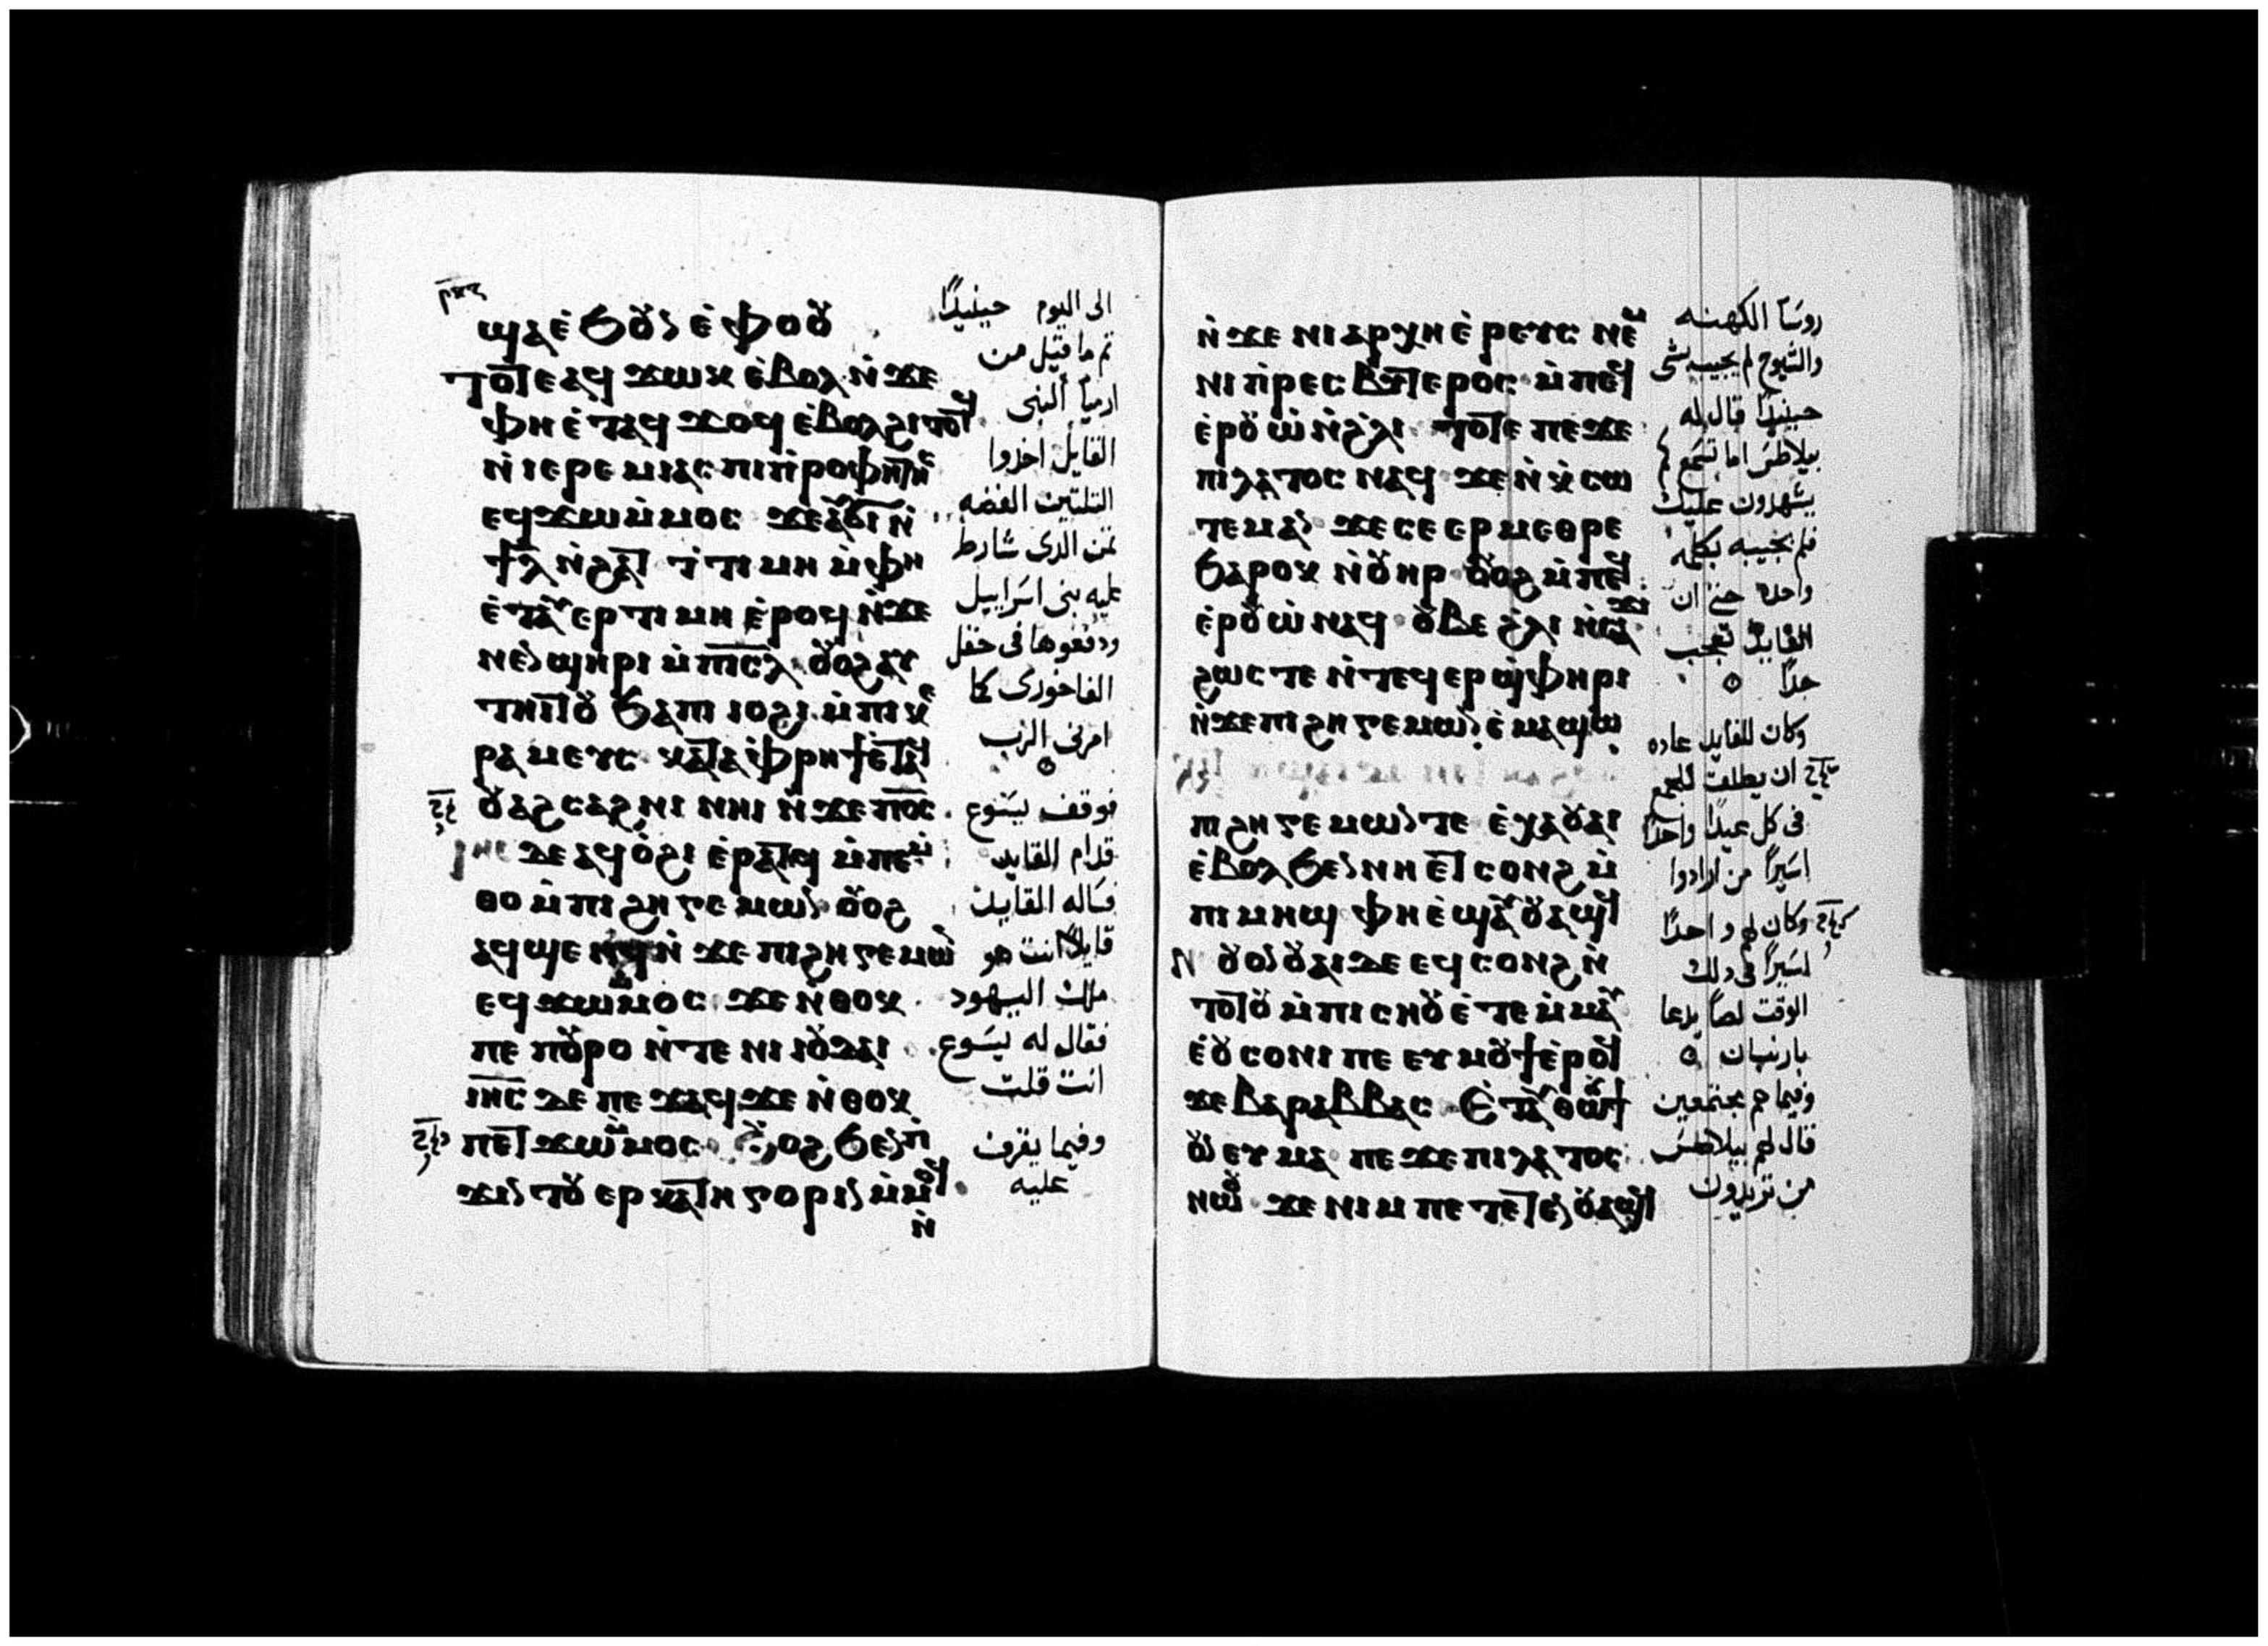 ϣⲁⲉ̇ϧⲟⲩⲛ ⲉ̇ⲫⲟⲟⲩ
ⲧⲟⲧⲉ ⲁϥϫⲱⲕ ⲉ̇ⲃⲟⲗ ⲛ̇ϫⲉ
ⲫⲏ ⲉ̇ⲧⲁϥϫⲟϥ ⲉ̇ⲃⲟⲗϩⲓⲧⲟⲧϥ
ⲛ̇ⲓⲉⲣⲉⲙⲓⲁⲥ ⲡⲓⲡ̇ⲣⲟⲫⲏⲧⲏⲥ
ⲉϥϫⲱⲙ̇ⲙⲟⲥ ϫⲉ ⲁⲩϭⲓ ⲛ̇
ϯⲗ̅ ⲛ̇ϩⲁⲧ ⲧ̇ⲧⲓⲙⲏ ⲙ̇ⲫⲏ
ⲉ̇ⲧⲁⲩⲉⲣⲧⲓⲙⲏ ⲉ̇ⲣⲟϥ ⲛ̇ϫⲉ
ⲛⲉⲛϣⲏⲣⲓ ⲙ̇ⲡⲓⲥ̅ⲗ̅ ⲟⲩⲟϩ ⲁⲩ
ⲧⲏⲓⲧⲟⲩ ϧⲁ ⲡⲓⲓⲟϩⲓ ⲙ̇ⲡⲓⲕⲉ
ⲣⲁⲙⲉⲩⲥ ⲕⲁⲧⲁ ⲫ̇ⲣⲏϯ ⲉ̇ⲧⲁϥ
ⲟⲩⲁϩⲥⲁϩⲛⲓ ⲛⲏⲓ ⲛ̇ϫⲉ ⲡⲟ̅ⲥ̅
ⲓⲏⲥ ⲇⲉ ⲁϥⲟ̇ϩⲓ ⲉ̇ⲣⲁⲧϥ ⲙ̇ⲡⲉⲙ̇
ⲑⲟ ⲙ̇ⲡⲓϩⲏⲅⲉⲙⲱⲛ ⲟⲩⲟϩ
ⲁϥϣⲉⲛϥ ⲛ̇ϫⲉ ⲡⲓϩⲏⲅⲉⲙⲱⲛ
ⲉϥϫⲱⲙⲙⲟⲥ ϫⲉ ⲛ̇ⲑⲟⲕ
ⲡⲉ ⲡⲟⲩⲣⲟ ⲛ̇ⲧⲉ ⲛⲓⲓⲟⲩⲇⲁⲓ
ⲓⲏ̅ⲥ̅ ⲇⲉ ⲡⲉϫⲁϥ ϫⲉ ⲛ̇ⲑⲟⲕ
ⲡⲉⲧϫⲱⲙ̇ⲙⲟⲥ ⲟⲩⲟϩ ϧⲉⲛⲡ̇
ϫⲓⲛⲧⲟⲩⲉⲣⲕⲁⲧⲏⲅⲟⲣⲓⲛ ⲙ̇ⲙⲟϥ
ⲛ̇
الى اليوم حينيذًا
تم ما قيل من
ارميا النبى
القايل اخذوا
التلتين الفضه
تمن الدى شارط
عليه بنى اسراييل
ودفعوها فى حقل
الفاخورى كما
امرنى الرب
فوقف يسوع
قدام القايد
فساله القايد
قايلًا انت هو
ملك اليهود
فقال له يسوع
انت قلت
وفيما يقرف
عليه
ⲛ̇ϫⲉ ⲛⲓⲁⲣⲭⲏⲉ̇ⲣⲉⲩⲥ ⲛⲉⲙ
ⲛⲓⲡ̇ⲣⲉⲥⲃⲩⲧⲉⲣⲟⲥ ⲙ̇ⲡⲉϥ
ⲉ̇ⲣⲟⲩⲱ̇ ⲛ̇ϩ̇ⲗⲓ ⲧⲟⲧⲉ ⲡⲉϫⲉ
ⲡⲓⲗⲁⲧⲟⲥ ⲛⲁϥ ϫⲉ ⲛ̇ⲕ̇ⲥⲱ
ⲧⲉⲙ ⲁⲛ ϫⲉ ⲥⲉⲉⲣⲙⲉⲑⲣⲉ
ϧⲁⲣⲟⲕ ⲛ̇ⲟⲩⲏⲣ ⲟⲩⲟϩ ⲙ̇ⲡⲉϥ
ⲉ̇ⲣⲟⲩⲱ̇ ⲛⲁϥ ⲟⲩⲃⲉ ϩ̇ⲗⲓ ⲛ̇ⲥⲁϫⲓ
ϩⲱⲥⲧⲉ ⲛ̇ⲧⲉϥⲉⲣϣ̇ⲫⲏⲣⲓ
ⲛ̇ϫⲉ ⲡⲓϩⲏⲅⲉⲙⲱⲛ ⲉ̇ⲙⲁϣⲱ
ⲡⲓϩⲏⲅⲉⲙⲱⲛ ⲧⲉ ⲉ̇ⲭⲁ ⲟⲩⲁⲓ
ⲉ̇ⲃⲟⲗ ϧⲉⲛ ⲛⲏ ⲉⲧⲥⲟⲛϩ ⲙ̇
ⲡⲓⲙⲏϣ ⲫⲏ ⲉ̇ϣⲁⲩⲟⲩⲁϣϥ
ⲛⲉ ⲟⲩⲟⲛ ⲟⲩⲁⲓ ⲇⲉ ⲉϥⲥⲟⲛϩ ⲛ̇
ⲧⲟⲧⲟⲩ ⲙ̇ⲡⲓⲥⲏⲟⲩ ⲉ̇ⲧⲉⲙ̇ⲙⲁⲩ
ⲉ̇ⲟⲩⲥⲟⲛⲓ ⲡⲉ ⲉⲩⲙⲟⲩϯ ⲉ̇ⲣⲟϥ
ϫⲉ ⲃⲁⲣⲁⲃⲃⲁⲥ ⲉ̇ⲧⲁⲩⲑⲱⲟⲩϯ
ⲟⲩⲛ ⲉⲩⲙⲁ ⲡⲉϫⲉ ⲡⲓⲗⲁⲧⲟⲥ
ⲛⲱⲟⲩ ϫⲉ ⲛⲓⲙ ⲡⲉⲧⲉⲧⲉⲛⲟⲩⲁϣϥ
روسا الكهنه
والشيوخ لم يجيب بشى
حينيذًا قال له
بيلاطس اما تسمع كم
يشهدون عليك
فلم يجيبه بكلمه
واحده حتى ان
القايد تعجب
جدًا
وكان للقايد عاده
ان يطلق للجمع
فى كل عيدًا واحدًا
اسيرًا من ارادوا
وكان لهم واحدًا
اسيرًا فى دلك
الوقت لصًا يدعا
بارنبان
وفيما هم مجتمعين
قال لهم بيلاطس
من تريدون